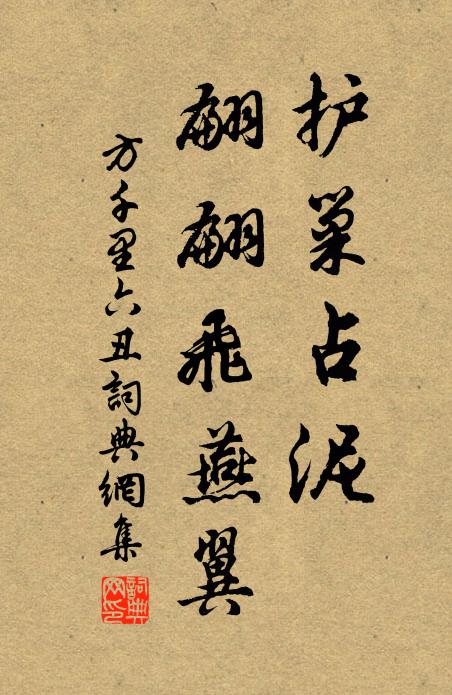 护巢占泥
翩翩飞燕翼
方千里六丑詞典網集
詞典网印